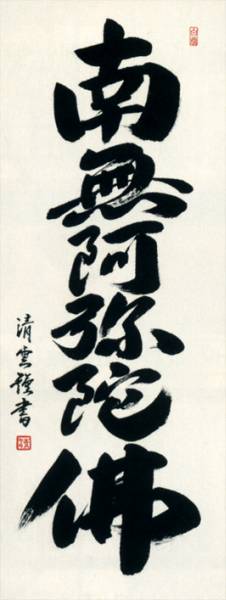 南無阿弥陀佛
清雲謹書